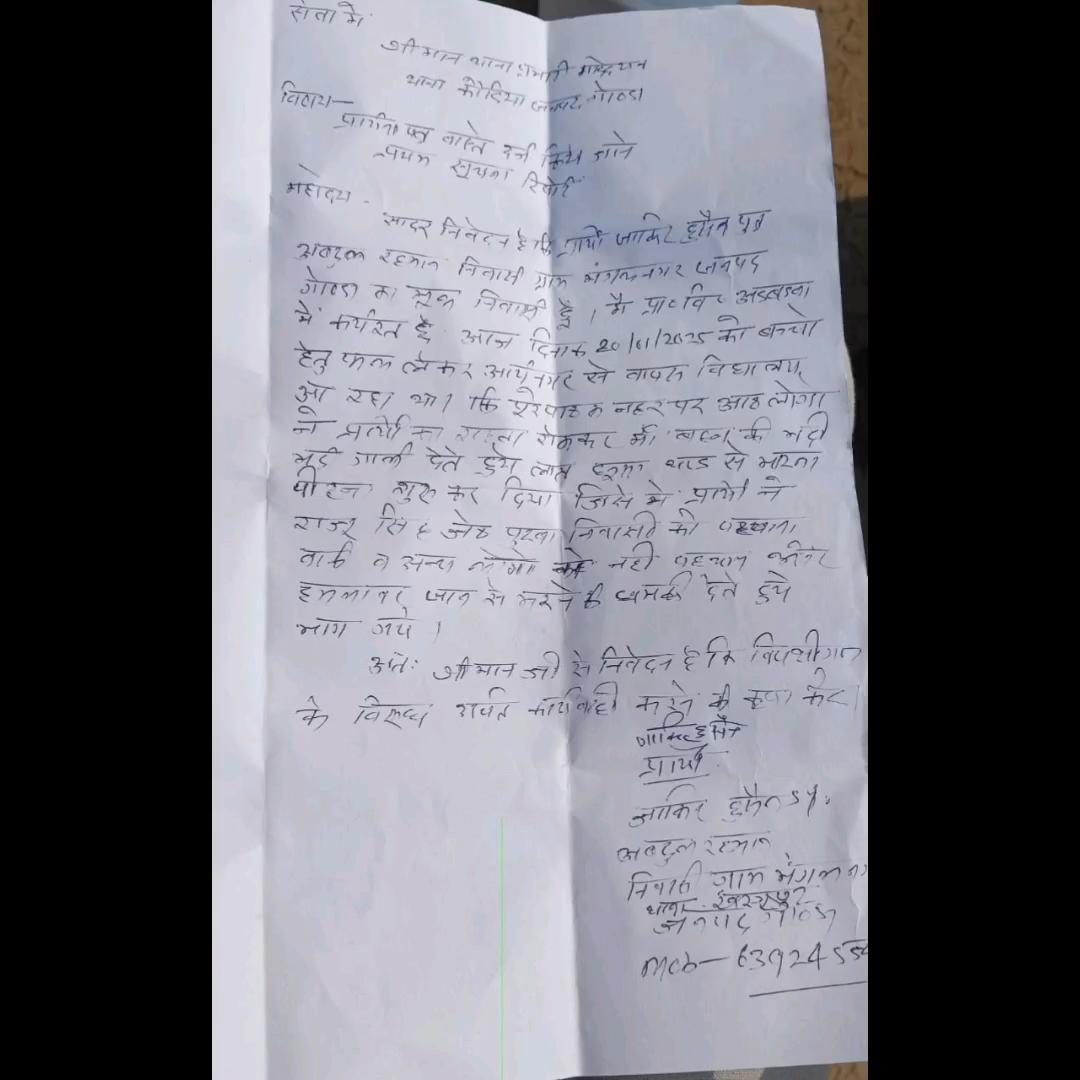 सेवा में
श्रीमान थाना प्रभारी महोदय
थाना कौडिया जनपद गोण्डा
विषय—
प्रार्थना पत्र वास्ते दर्ज किये जाने
प्रथम सूचना रिपोर्ट
महोदय.
सादर निवेदन है कि प्रार्थी जाकिर हुसैन पुत्र
अबदुल रहमान निवासी ग्राम मंगलनगर जनपद
गोण्डा का मूल निवासी हूँ। मै प्रा० वि०
में कार्यरत है आज दिनांक 20/01/2025 को बच्चो
हेतु फल लेकर आर्यनगर से वापस विद्यालय
आ रहा था। कि नहर पर आठ लोगो
ने प्रार्थी का रास्ता रोककर माँ बहन की भद्दी
भद्दी गाली देते हुये लात घूसा थाड से मारना
पीटना शुरू कर दिया जिसे मे प्रार्थी ने
राजू सिंह पुरवा निवासी को पहचाना
बाकी व अन्य लोगो को नही पहचान
हमलावर जान से मारने की धमकी देते हुये
भाग गये।
अंतः श्रीमान जी से निवेदन है कि विपक्षीगण
के विरूध्द कार्यवाही करने की कृपा करे।
जाकिर हुसैन
प्रार्थी
जाकिर हुसैन S/o
अबदुल रहमान
निवासी ग्राम मंगल
थाना
जनपद गोण्डा
mob— 63924554